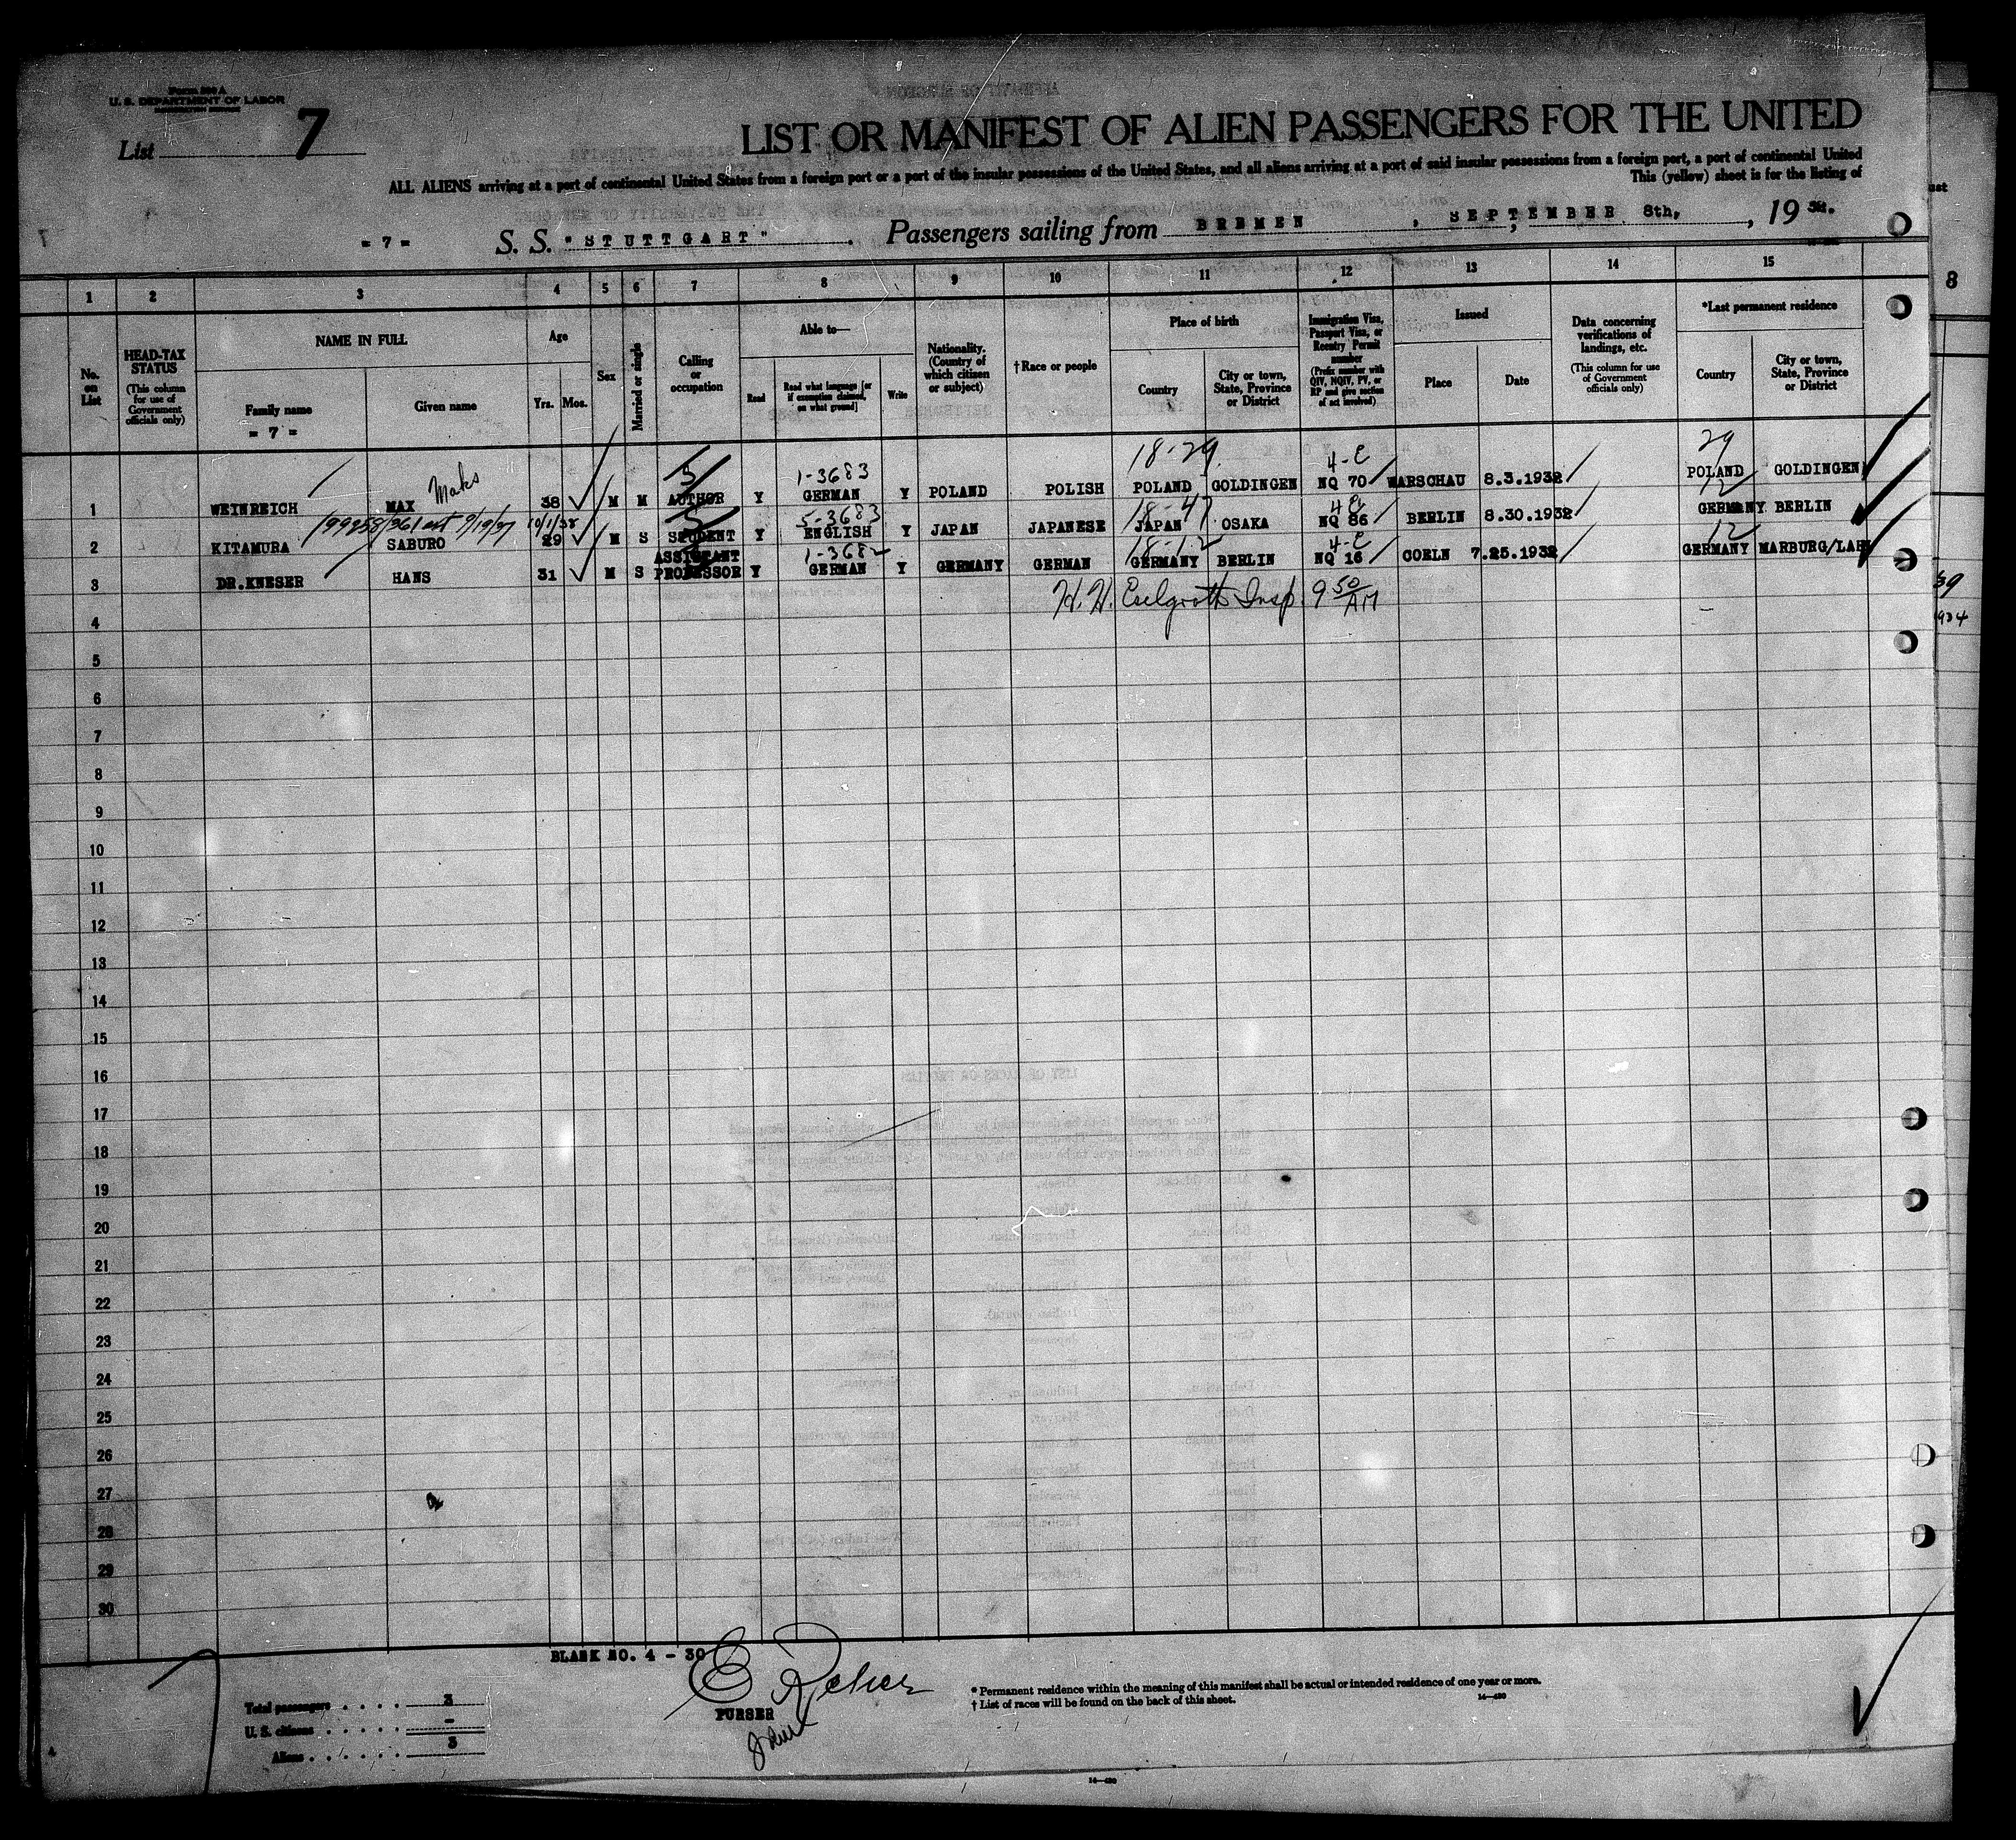 Form 500 A
U. S. DEPARTMENT OF LABOR
List 7
LIST OR MANIFEST OF ALIEN PASSENGERS FOR THE UNITED
ALL ALIENS arriving at a port of continental United States from a foreign port or a port of the insular possessions of the United States, and all aliens arriving at a port of said insular possessions from a foreign port, a port of continental United
This (yellow) sheet is for the listing of
= 7 = S. S. "STUTTGART". Passengers sailing from BREMEN, SEPTEMBER 8th, 19 32.
1 2 3 4 5 6 7 8 9 10 11 12 13 14 15
No. on List
HEAD-TAX STATUS
(This column for use of Government officials only)
NAME IN FULL
Family name
= 7 =
Given name
Age
Yrs. Mos.
Sex
Married or single
Calling or occupation
Able to—
Read
Read what language [or if exemption claimed, on what ground]
Write
Nationality. (Country of which citizen or subject)
†Race or people
Place of birth
Country
City or town, State, Province or District
Immigration Visa, Passport Visa, or Reentry Permit number
(Prefix number with QIV, NQIV, PV, or RP and give section of act involved)
Issued
Place
Date
Data concerning verifications of landings, etc.
(This column for use of Government officials only)
*Last permanent residence
Country
City or town, State, Province or District
Maks 5 1-3683 18-29 4-C 29
1 WEINREICH MAX 38 M M AUTHOR Y GERMAN Y POLAND POLISH POLAND GOLDINGEN NQ 70 WARSCHAU 8.3.1932 POLAND GOLDINGEN
10/1/38 5 5-3683 18-47 4C 12
2 KITAMURA SABURO 29 M S STUDENT Y ENGLISH Y JAPAN JAPANESE JAPAN OSAKA NQ 86 BERLIN 8.30.1932 GERMANY BERLIN
1-3682 18-12 4-C 12
3 DR.KNESER HANS 31 M S ASSISTANT PROFESSOR Y GERMAN Y GERMANY GERMAN GERMANY BERLIN NQ 16 COELN 7.25.1932 GERMANY MARBURG/LAHN
H. H. Insp. 9 50 AM
4
5
6
7
8
9
10
11
12
13
14
15
16
17
18
19
20
21
22
23
24
25
26
27
28
29
30
BLANK NO. 4 - 30
PURSER
Total passengers . . . . 3
U. S. citizens . . . . . -
Aliens . . . . . . 3
* Permanent residence within the meaning of this manifest shall be actual or intended residence of one year or more.
† List of races will be found on the back of this sheet.
14—430
14—430
8